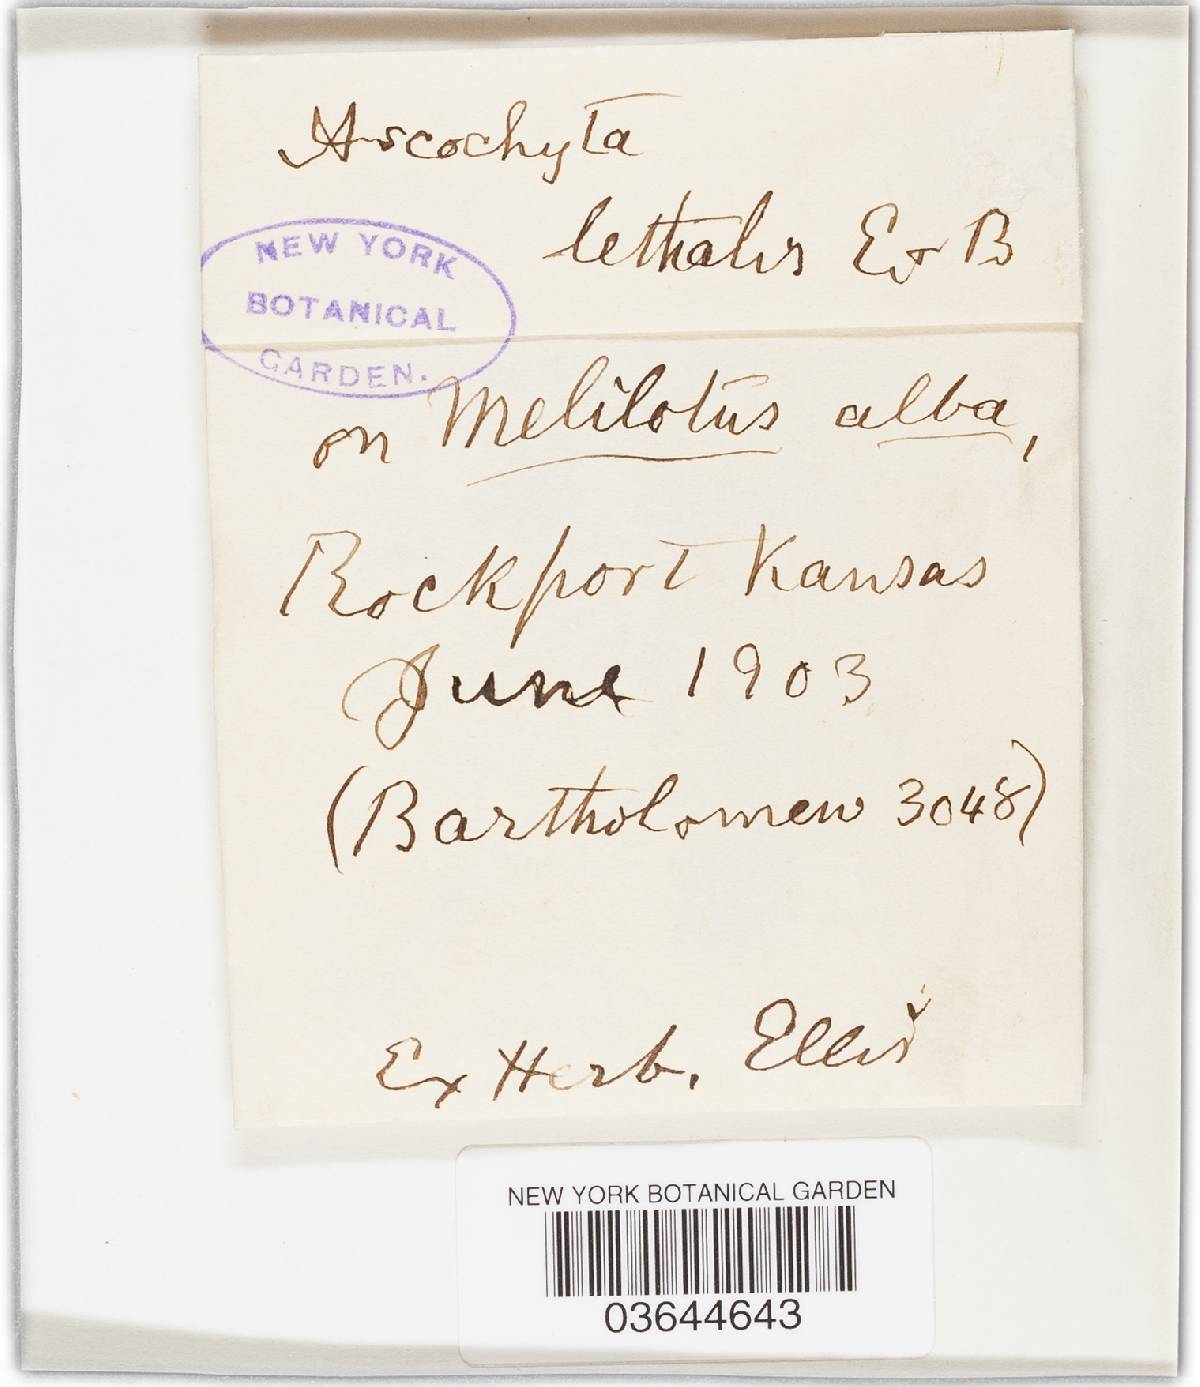 Ascochyta
lethalis E & B
NEW YORK
BOTANICAL
GARDEN.
on Melilotus alba,
Rockport Kansas
June 1903
(Bartholomew 3048)
Ex Herb. Ellis
NEW YORK BOTANICAL GARDEN
03644643